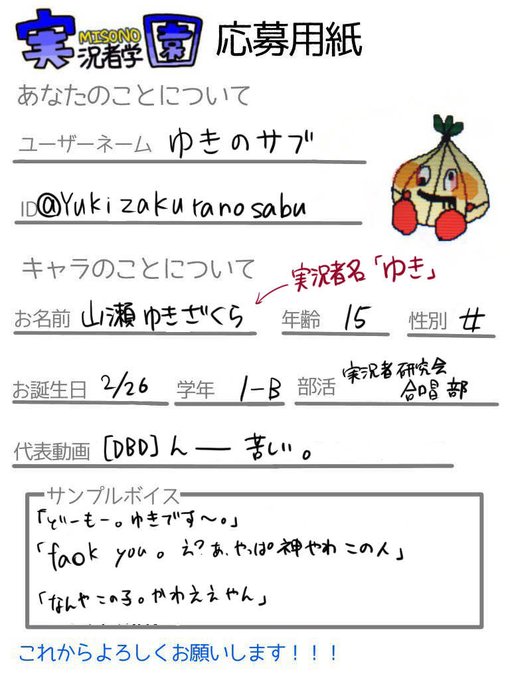 実況者学園 MISONO 応募用紙
あなたのことについて
ユーザーネーム ゆきのサブ
ID@Yukizakuranosabu
キャラのことについて
実況者名「ゆき」
お名前 山瀬ゆきざくら 年齢 15 性別 女
お誕生日 2/26 学年 1-B 部活 実況者研究会
合唱部
代表動画 [DBD]んー苦しい。
サンプルボイス
「どーもー。ゆきです〜。」
「faok you。え?あ、やっぱ神やわこの人」
「なんやこの子。かわええやん」
これからよろしくお願いします!!!